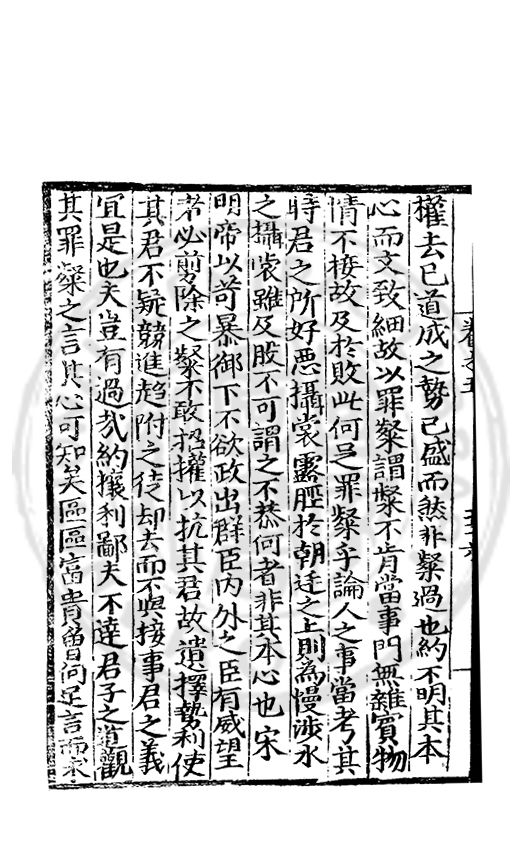 權去已道成之勢已盛而然非粲過也約不明其本
心而文致細故以罪粲謂粲不肯當事門無雜賓物
情不接故及於敗此何足罪粲乎論人之事當考其
時君之所好惡攝裳露脛於朝廷之上則為慢涉水
之攝裳雖及股不可謂之不恭何者非其本心也宋
明帝以苛暴御下不欲政出群臣内外之臣有威望
者必剪除之粲不敢招權以抗其君故遺擇勢利使
其君不疑競進趨附之徒却去而不與接事君之義
宜是也夫豈有過哉約攘利鄙夫不達君子之道觀
其罪粲之言其心可知矣區區富貴曾何足言而
卷之五